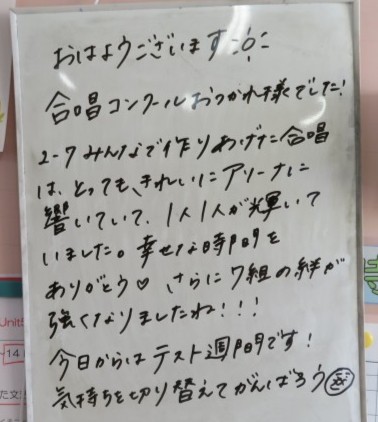 おはようございます
合唱コンクールおつかれ様でした!
2-7みんなで作りあげた合唱
は、とっても、きれいにアリーナに
響いていて、1人1人が輝いて
いました。幸せな時間を
ありがとう♡ さらに7組の絆が
強くなりましたね!!!
今日からはテスト週間です!
気持ちを切り替えてがんばろう
Unit
14